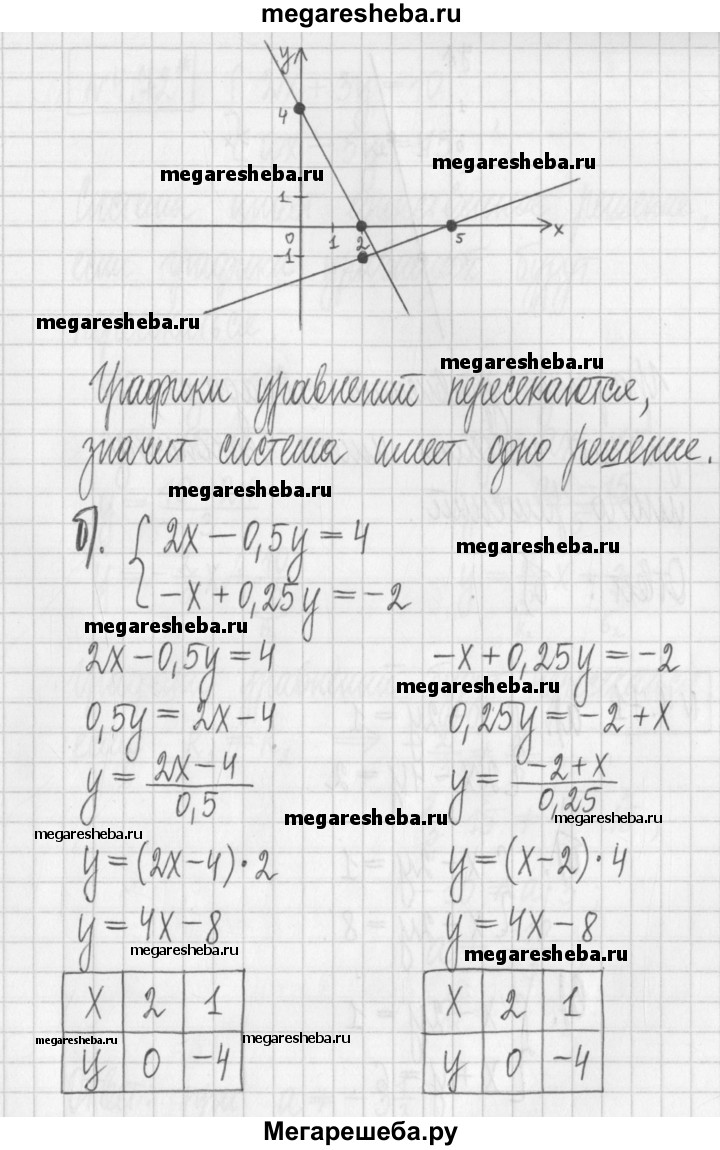 megaresheba.ru
y
4
megaresheba.ru
megaresheba.ru
1
0 1 2 5 x
-1
megaresheba.ru
megaresheba.ru
Графики уравнений пересекаются,
значит система имеет одно решение.
megaresheba.ru
б). { 2x - 0,5y = 4
megaresheba.ru
-x + 0,25y = -2
megaresheba.ru
2x - 0,5y = 4 -x + 0,25y = -2
megaresheba.ru
0,5y = 2x - 4 0,25y = -2 + x
y = (2x - 4)/0,5 y = (-2 + x)/0,25
megaresheba.ru megaresheba.ru
megaresheba.ru
y = (2x - 4) · 2 y = (x - 2) · 4
y = 4x - 8 y = 4x - 8
megaresheba.ru megaresheba.ru
x 2 1 x 2 1
megaresheba.ru megaresheba.ru
y 0 -4 y 0 -4
Мегарешеба.ру